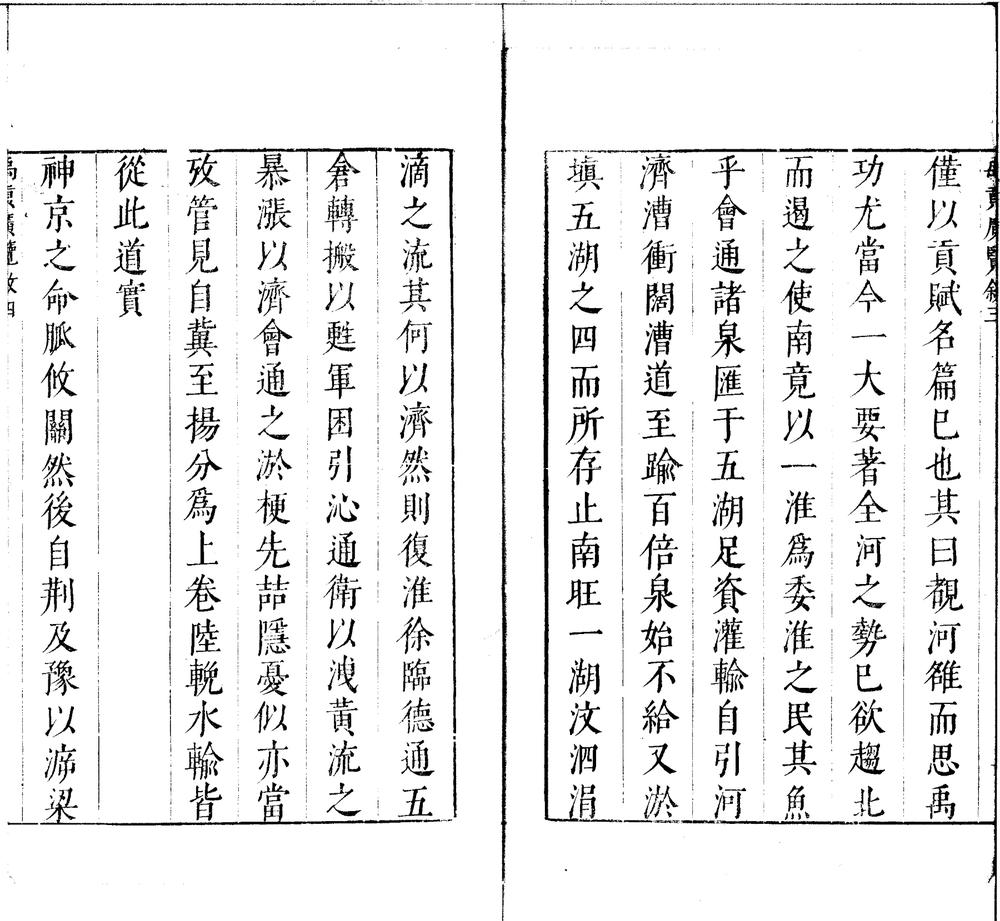 禹貢廣覽敘三
僅以貢賦名篇已也其曰覩河雒而思禹
功尤當今一大要著全河之勢已欲趨北
而遏之使南竟以一淮爲委淮之民其魚
乎會通諸泉匯于五湖足資灌輸自引河
濟漕衝闊漕道至踰百倍泉始不給又淤
塡五湖之四而所存止南旺一湖汶泗涓
滴之流其何以濟然則復淮徐臨德通五
倉轉搬以甦軍困引沁通衛以洩黃流之
暴漲以濟會通之淤梗先喆隱憂似亦當
攷管見自冀至揚分爲上卷陸輓水輸皆
從此道實
神京之命脈攸關然後自荆及豫以泝梁
禹貢廣覽敘四